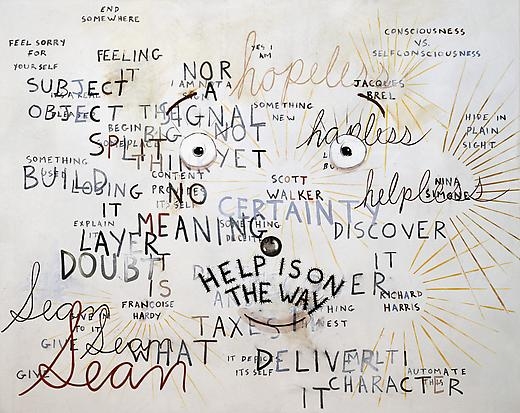 END
SOMEWHERE
FEEL SORRY
FOR
YOURSELF
FEELING
IT
YES I
AM
CONSCIOUSNESS
VS.
SELFCONSCIOUSNESS
NOR
A
SIGNAL
NOT
YET
hopeless
JACQUES
BREL
SUBJECT
OBJECT
SPLIT
BEGIN
BIG
SOMETHING
NEW
hapless
HIDE IN
PLAIN
SIGHT
SOMETHING
USED
BUILD
LOSING
IT
CONTENT
PROVIDES
ITSELF
NO
MEANING
SCOTT
WALKER
CERTAINTY
helpless
NINA
SIMONE
DISCOVER
IT
EXPLAIN
LAYER
DOUBT
IT
IS
SOMETHING
HELP IS ON
THE WAY
ER
RICHARD
HARRIS
FRANCOISE
HARDY
Sean
GIVE
IN
TO IT
Sean
GIVE
Sean
WHAT
TAXES
IT
ITSELF
DELIVER
IT
MULTI
CHARACTER
AUTOMATE
THIS